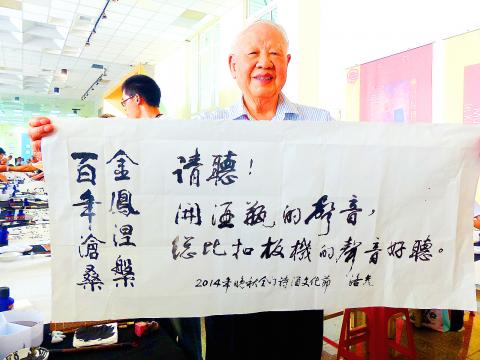 金鳳涅槃
百年滄桑
請聽！
開酒瓶的聲音，
總比扣板機的聲音好聽。
2014年晚秋金門詩酒文化節